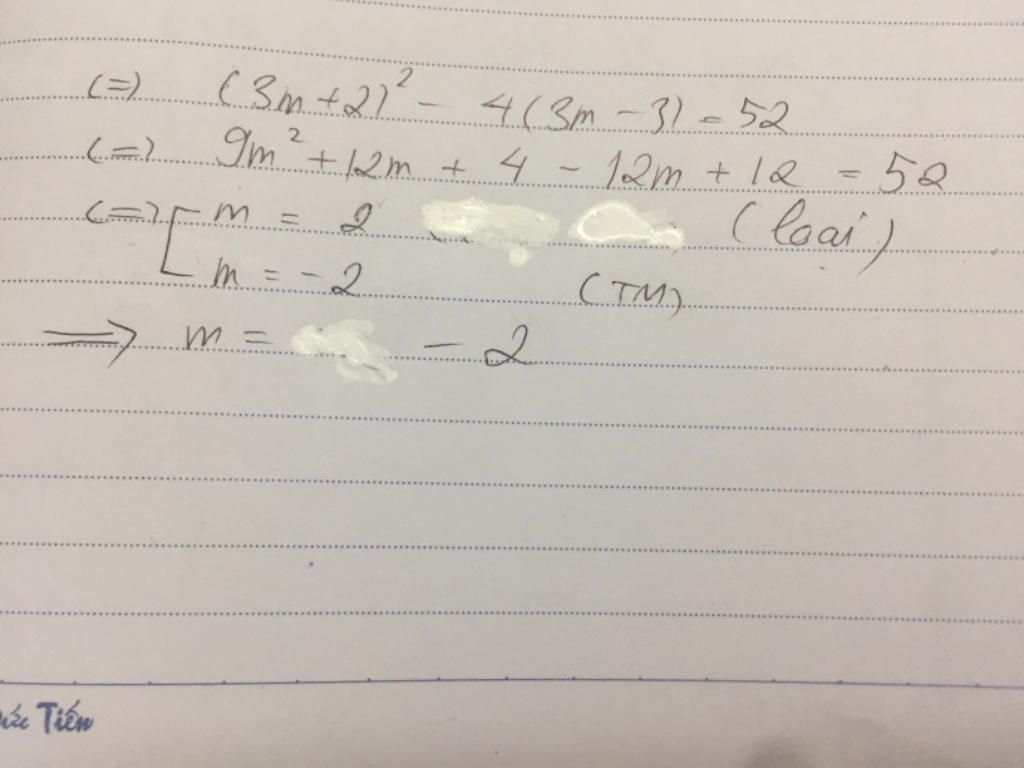 (=) (3m+2)² - 4(3m-3) = 52
(=) 9m² + 12m + 4 - 12m + 12 = 52
(=) [ m = 2 (loại)
m = -2 (TM)
=> m = -2
Tiến